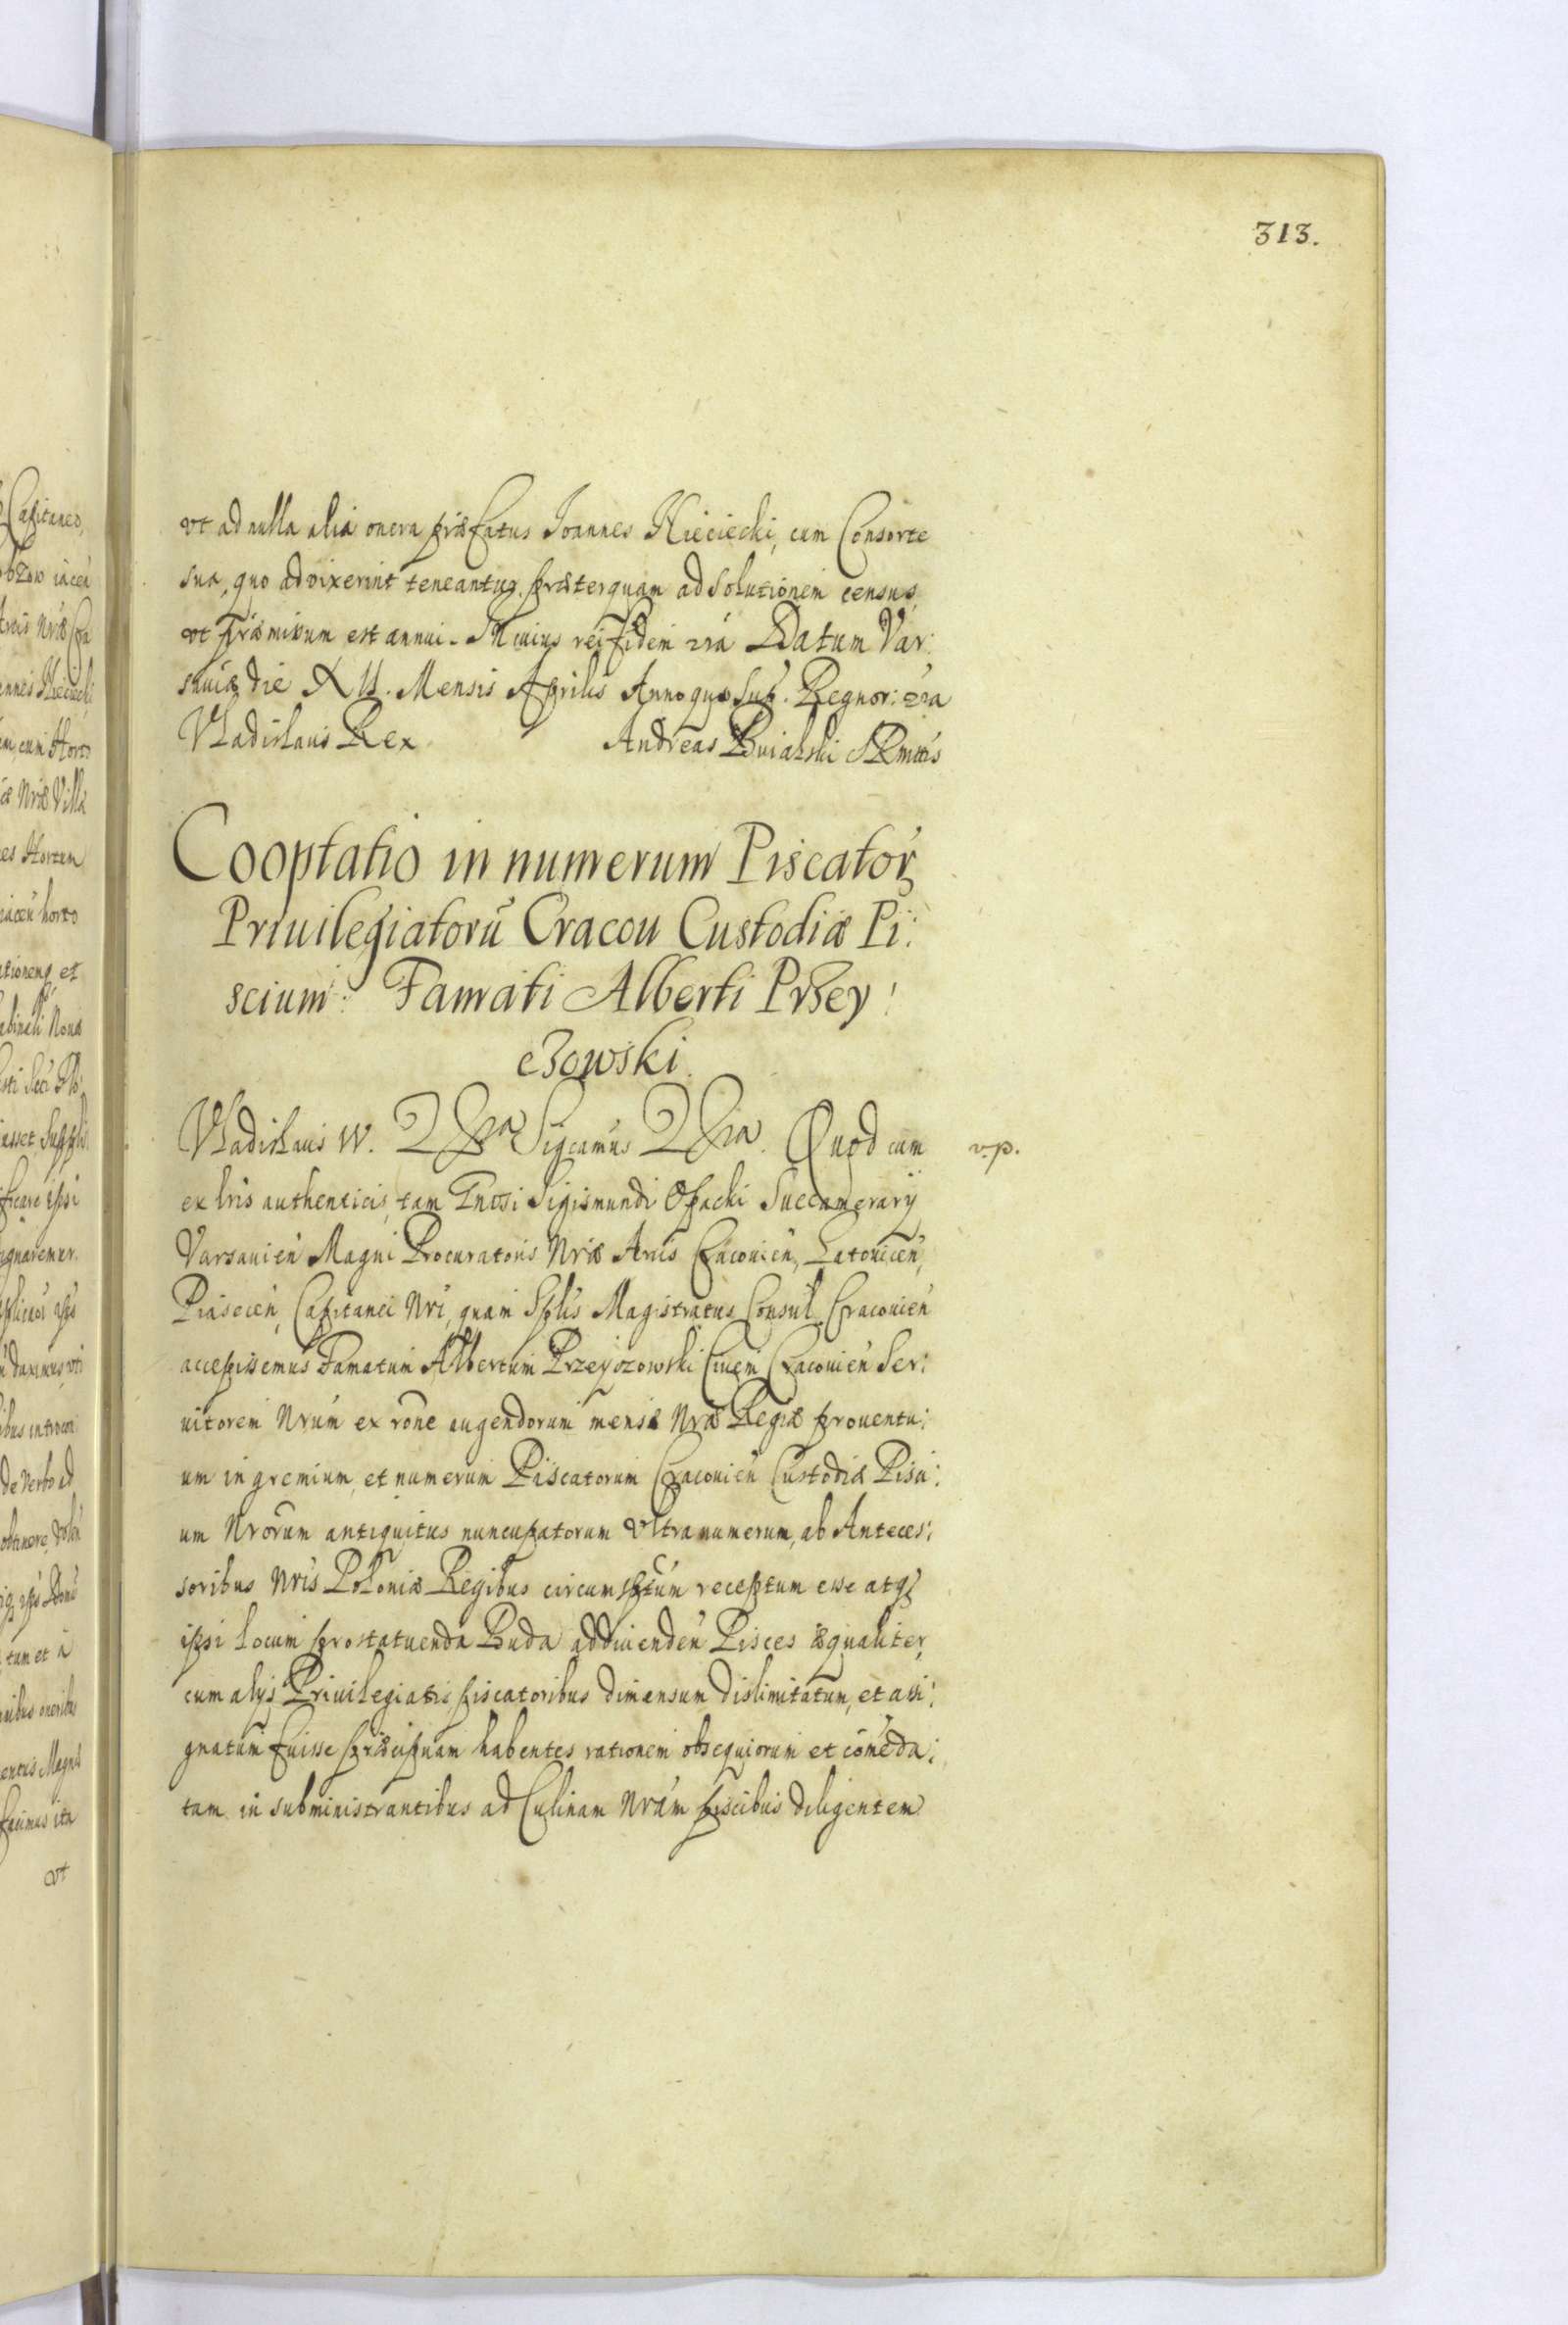 313.
vt ad nulla alia onera præfatus Ioannes Kieciecki, cum Consorte
sua, quo advixerint teneantur præterquam ad solutionem census,
vt præmissum est annui. In cuius rei fidem zra Datum Var:
sauiæ die XII. Mensis Aprilis Anno quo sup. Regnor: zra
Vladislaus Rex Andreas Buialski SRmttis
Cooptatio in numerum Piscator
Priuilegiatorū Cracou Custodiæ Pi:
scium: Famati Alberti Przey:
czowski.
Vladislaus IV. Sigcamus Quod cum v.p.
ex lris authenticis, tam Gnosi Sigismundi Opacki Succamerarij
Varsauien Magni Procuratoris Nræ Arcis Cracouien, Latouicen,
Piasecien, Capitanei Nri, quam Splis Magistratus Consul Cracouien
accepissemus Famatum Albertum Przeyczowski Ciuem Cracouien Ser:
uitorem Nrum ex rone augendorum mensæ Nræ Regiæ prouentu:
um in gremium, et numerum Piscatorum Cracouien Custodiæ Pisci:
um Nrorum antiquitus nuncupatorum vltra numerum, ab Anteces:
soribus Nris Poloniæ Regibus circumsptum receptum esse atq
ipsi locum pro statuenda Buda ad diuenden Pisces æqualiter,
cum alys Priuilegiatis piscatoribus dimensum, dislimitatum, et assi:
gnatum fuisse præcipuam habentes rationem obsequiorum et comēda:
tam in subministrantibus ad Culinam Nram piscibus diligentem
vt